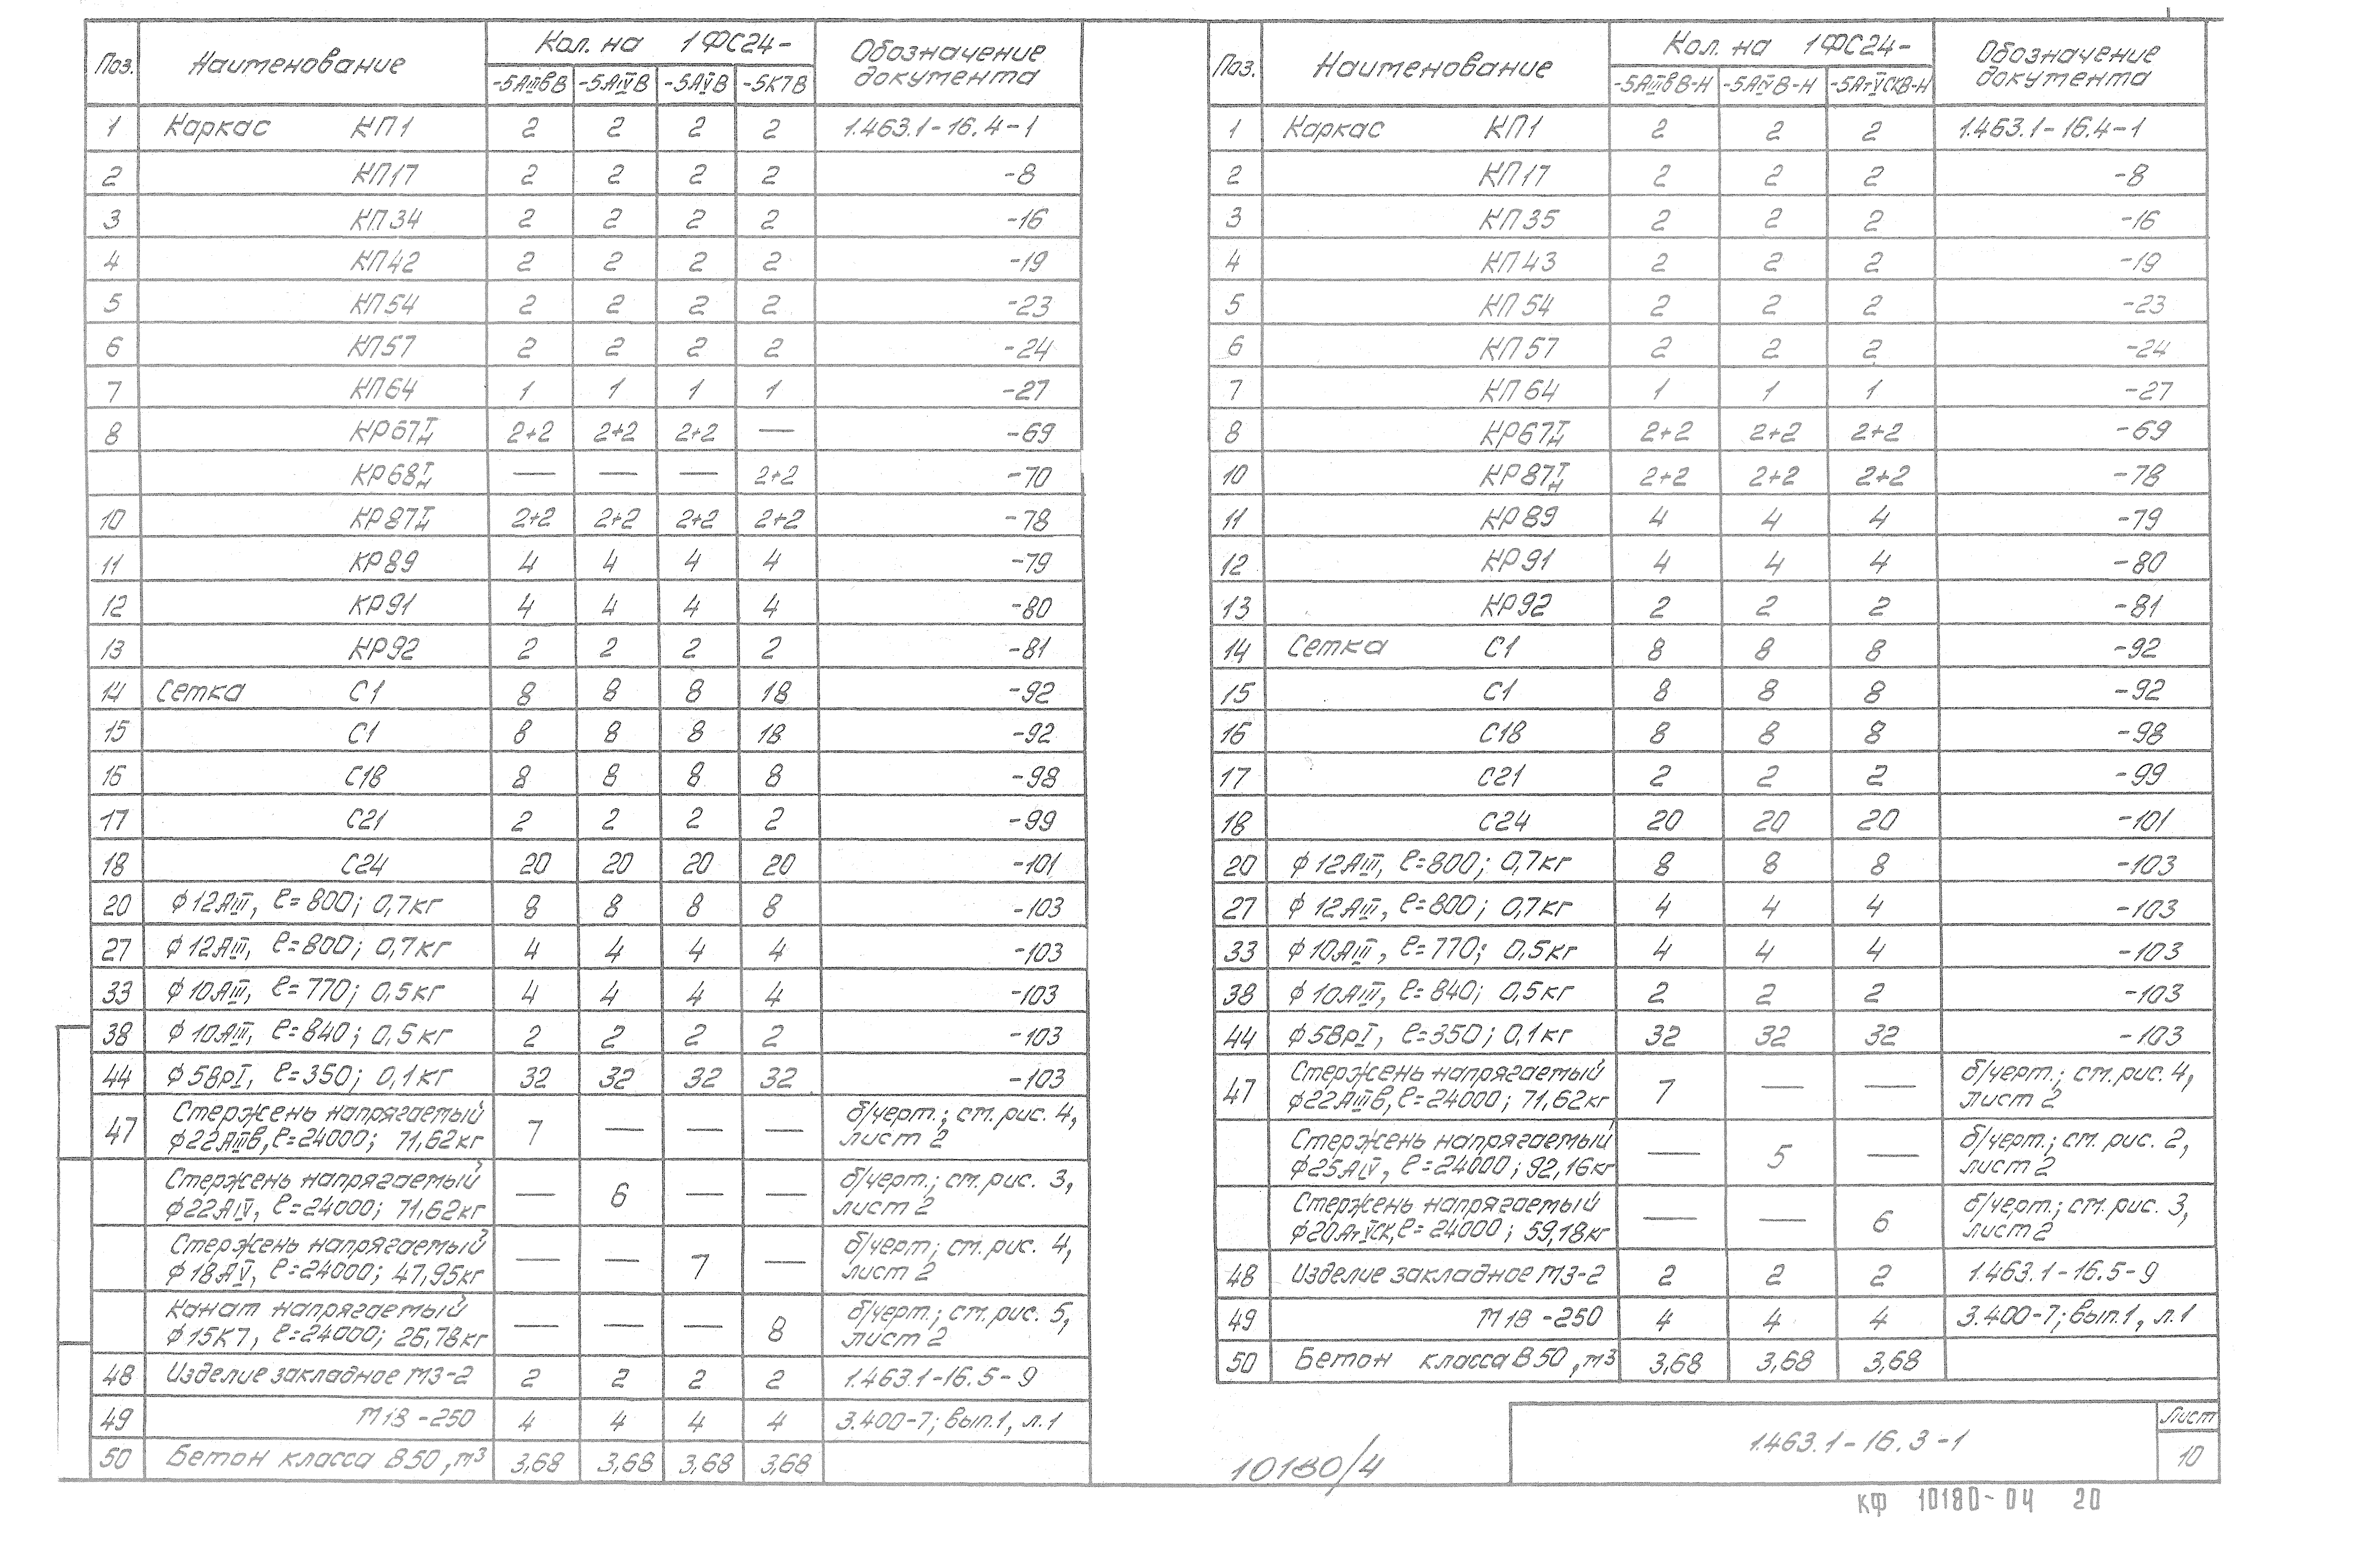 Поз. Наименование Кол. на 1ФС24- Обозначение документа
-5АIIIвВ -5АIVВ -5АVВ -5К7В
1 Каркас КП1 2 2 2 2 1.463.1-16.4-1
2 КП17 2 2 2 2 -8
3 КП34 2 2 2 2 -16
4 КП42 2 2 2 2 -19
5 КП54 2 2 2 2 -23
6 КП57 2 2 2 2 -24
7 КП64 1 1 1 1 -27
8 КР67Т/Н 2+2 2+2 2+2 — -69
КР68Т/Н — — — 2+2 -70
10 КР87Т/Н 2+2 2+2 2+2 2+2 -78
11 КР89 4 4 4 4 -79
12 КР91 4 4 4 4 -80
13 КР92 2 2 2 2 -81
14 Сетка С1 8 8 8 18 -92
15 С1 8 8 8 18 -92
16 С18 8 8 8 8 -98
17 С21 2 2 2 2 -99
18 С24 20 20 20 20 -101
20 ф12АIII, ℓ=800; 0,7кг 8 8 8 8 -103
27 ф12АIII, ℓ=800; 0,7кг 4 4 4 4 -103
33 ф10АIII, ℓ=770; 0,5кг 4 4 4 4 -103
38 ф10АIII, ℓ=840; 0,5кг 2 2 2 2 -103
44 ф5ВрI, ℓ=350; 0,1кг 32 32 32 32 -103
47 Стержень напрягаемый ф22АIIIв, ℓ=24000; 71,62кг 7 — — — б/черт.; см. рис. 4, лист 2
Стержень напрягаемый ф22АIV, ℓ=24000; 71,62кг — 6 — — б/черт.; см. рис. 3, лист 2
Стержень напрягаемый ф18АV, ℓ=24000; 47,95кг — — 7 — б/черт; см. рис. 4, лист 2
Канат напрягаемый ф15К7, ℓ=24000; 26,78кг — — — 8 б/черт.; см. рис. 5, лист 2
48 Изделие закладное М3-2 2 2 2 2 1.463.1-16.5-9
49 М18-250 4 4 4 4 3.400-7; вып.1, л.1
50 Бетон класса В50, м³ 3,68 3,68 3,68 3,68
Поз. Наименование Кол. на 1ФС24- Обозначение документа
-5АIIIвВ-Н -5АIVВ-Н -5АтVСКВ-Н
1 Каркас КП1 2 2 2 1.463.1-16.4-1
2 КП17 2 2 2 -8
3 КП35 2 2 2 -16
4 КП43 2 2 2 -19
5 КП54 2 2 2 -23
6 КП57 2 2 2 -24
7 КП64 1 1 1 -27
8 КР67Т/Н 2+2 2+2 2+2 -69
10 КР87Т/Н 2+2 2+2 2+2 -78
11 КР89 4 4 4 -79
12 КР91 4 4 4 -80
13 КР92 2 2 2 -81
14 Сетка С1 8 8 8 -92
15 С1 8 8 8 -92
16 С18 8 8 8 -98
17 С21 2 2 2 -99
18 С24 20 20 20 -101
20 ф12АIII, ℓ=800; 0,7кг 8 8 8 -103
27 ф12АIII, ℓ=800; 0,7кг 4 4 4 -103
33 ф10АIII, ℓ=770; 0,5кг 4 4 4 -103
38 ф10АIII, ℓ=840; 0,5кг 2 2 2 -103
44 ф5ВрI, ℓ=350; 0,1кг 32 32 32 -103
47 Стержень напрягаемый ф22АIIIв, ℓ=24000; 71,62кг 7 — — б/черт.; см. рис. 4, лист 2
Стержень напрягаемый ф25АIV, ℓ=24000; 92,16кг — 5 — б/черт.; см. рис. 2, лист 2
Стержень напрягаемый ф20АтVСК, ℓ=24000; 59,18кг — — 6 б/черт.; см. рис. 3, лист 2
48 Изделие закладное М3-2 2 2 2 1.463.1-16.5-9
49 М18-250 4 4 4 3.400-7; вып.1, л.1
50 Бетон класса В50, м³ 3,68 3,68 3,68
10180/4
1.463.1-16.3-1
Лист
10
КФ 10180-04 20